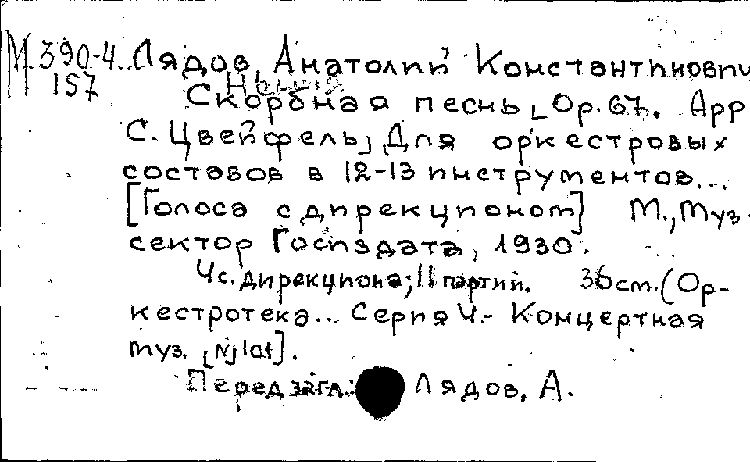 М.390-4. Лядов, Анатолий Константинович
157
Скорбная песнь, Ор.67. Арр
С. Цвейфель, Для оркестровых
составов в 12-13 инструментов...
[Голоса с дирекционом] М., Муз.
сектор Госиздата, 1930.
4с. дирекциона; 11 партий. 36см. (Ор-
кестротека... Серия 4.- Концертная
муз.
Перед загл.: Лядов, А.